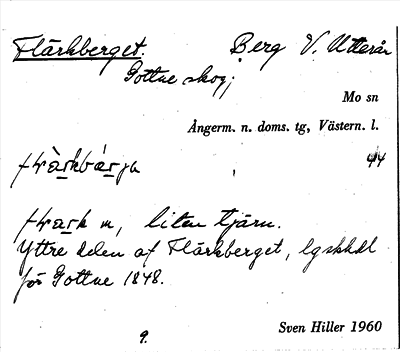 Flärkberget. Berg V. Utterån
Gottne skog;
Mo sn
Ångerm. n. doms. tg, Västern. l.
44
m, liten tjärn.
Yttre delen af Flärkberget, lgskkdl
för Gottne 1848.
9. Sven Hiller 1960